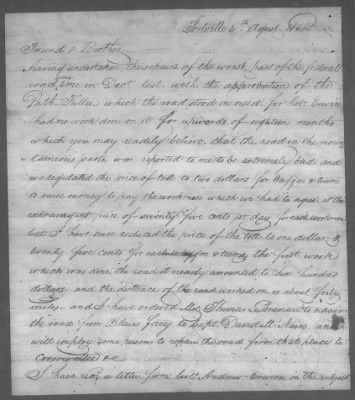 Fortville 5th August
Friend & Brother
Having undertaken the repairs of the worst part of the federal
road, in Decr last. with the approbation of the
Path Killer which the road stood in need, for Colo
had no work done on it for upwards of eighteen months
which you may readily believe, that the road in the
parts was reported to me to be extremely bad. and
we regulated the price of toll to two dollars for Waggon & team
to raise money to pay the workmen which we had to agree at the
extravagant price of seventy five cents pr day for each workman
but I have since reduced the price of the toll to one dollar &
twenty five cents for each waggon & team, the first work
which was done the road it nearly amounted to five hundred
dollars, and the distance of the road worked on is about forty
miles. and I have ordered Mr Thomas to repair
the road from Blairs ferry to Capt. David McNair, and
will employ some persons to repair the road from that place to
&c
I have recd a letter from Colo Andrew on the subject